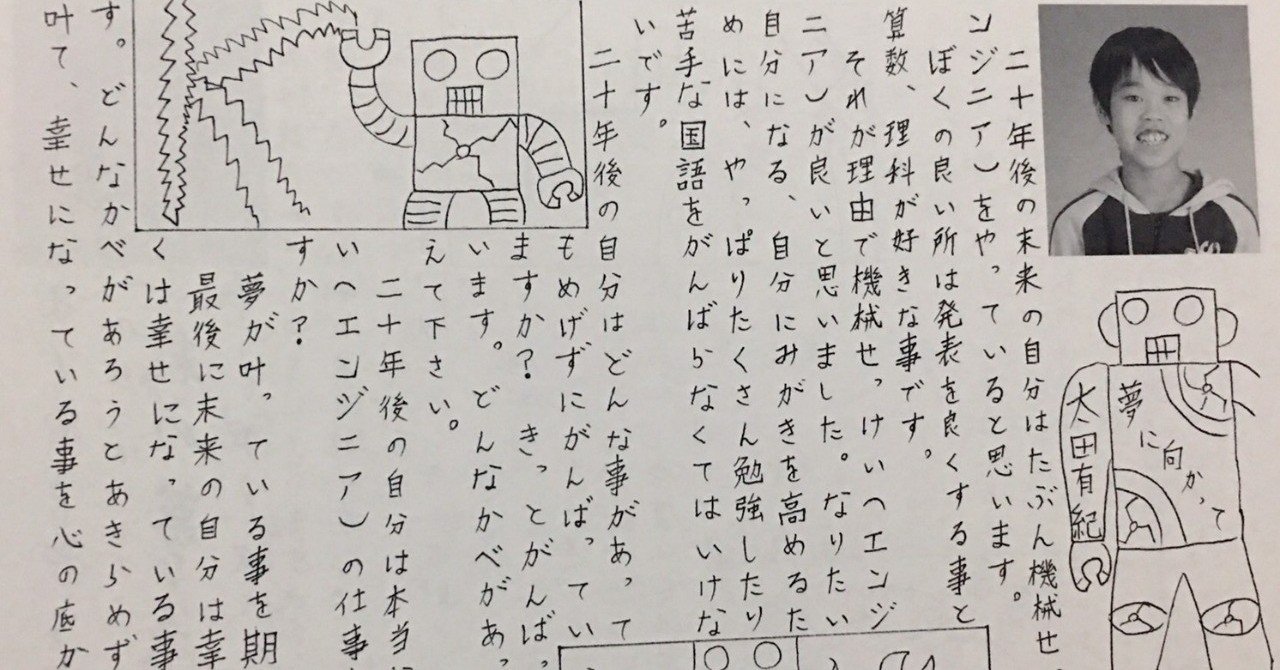 夢に向かって
太田有紀
二十年後の末来の自分はたぶん機械せ
ンジニア)をやっていると思います。
ぼくの良い所は発表を良くする事と
算数、理科が好きな事です。
それが理由で機械せっけい(エンジ
ニア)が良いと思いました。なりたい
自分になる、自分にみがきを高めるた
めには、やっぱりたくさん勉強したり
苦手な国語をがんばらなくてはいけな
いです。
二十年後の自分はどんな事があって
もめげずにがんばってい
ますか?きっとがんばっ
います。どんなかべがあっ
えて下さい。
二十年後の自分は本当
い(エンジニア)の仕事
すか?
夢が叶っている事を期
最後に末来の自分は幸
くは幸せになっている事
す。どんなかべがあろうとあきらめず
叶て、幸せになっている事を心の底か